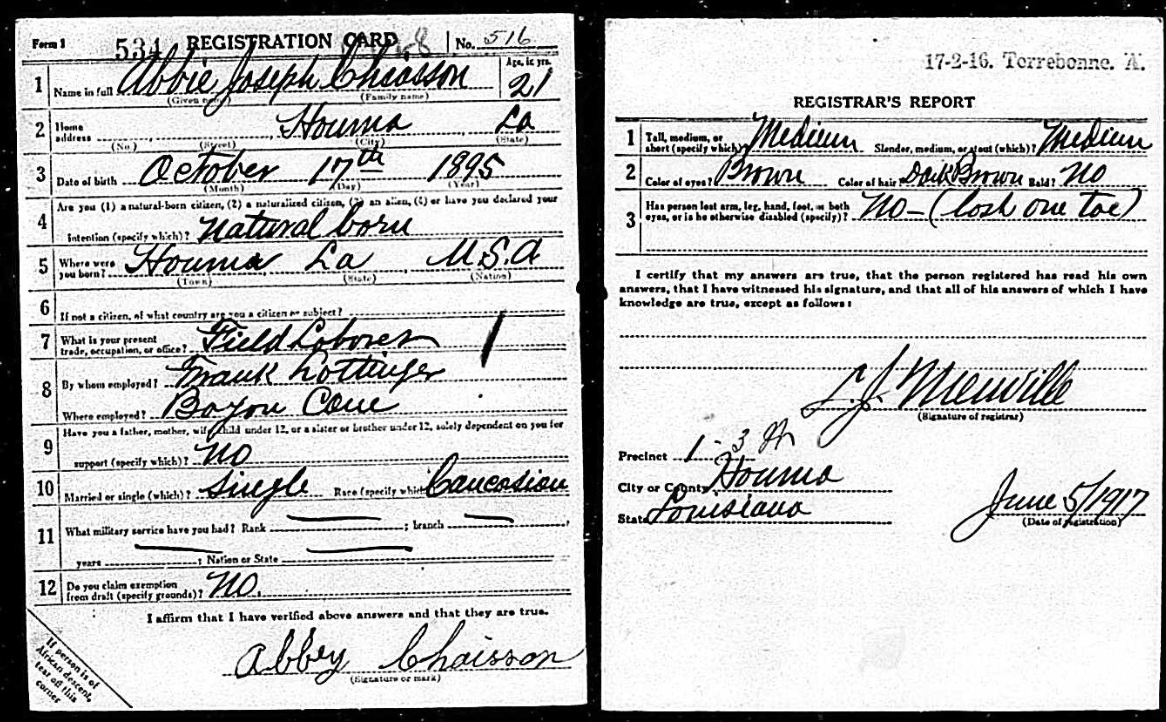 Form 1 534 REGISTRATION CARD No. 516
1 Name in full Abbie Joseph Chaisson Age, in yrs. 21
(Given name) (Family name)
2 Home address Houma La
(No.) (Street) (City) (State)
3 Date of birth October 17th 1895
(Month) (Day) (Year)
4 Are you (1) a natural-born citizen, (2) a naturalized citizen, (3) an alien, (4) or have you declared your
intention (specify which)? Natural born
5 Where were you born? Houma La U.S.A
(Town) (State) (Nation)
6 If not a citizen, of what country are you a citizen or subject?
7 What is your present trade, occupation, or office? Field Laborer
8 By whom employed? Frank Lottinger
Where employed? Bayou Cane
9 Have you a father, mother, wife, child under 12, or a sister or brother under 12, solely dependent on you for
support (specify which)? No
10 Married or single (which)? Single Race (specify which)? Caucasion
11 What military service have you had? Rank ; branch
years ; Nation or State
12 Do you claim exemption from draft (specify grounds)? No.
I affirm that I have verified above answers and that they are true.
Abbey Chaisson
(Signature or mark)
If person is of
African descent,
tear off this
corner
17-2-16. Terrebonne. A.
REGISTRAR'S REPORT
1 Tall, medium, or short (specify which)? Medium Slender, medium, or stout (which)? Medium
2 Color of eyes? Brown Color of hair? Dark Brown Bald? No
3 Has person lost arm, leg, hand, foot, or both eyes, or is he otherwise disabled (specify)? No – (lost one toe)
I certify that my answers are true, that the person registered has read his own
answers, that I have witnessed his signature, and that all of his answers of which I have
knowledge are true, except as follows:
L.J. Menville
(Signature of registrar)
Precinct 1 - 3
City or County Houma
State Louisiana
June 5/1917
(Date of registration)